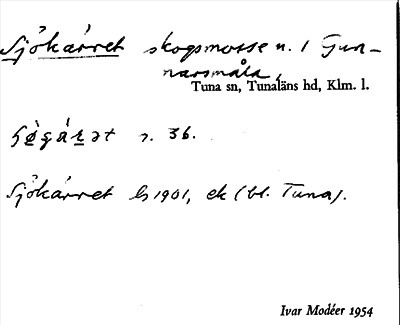 Sjökärret skogsmosse n. i Gun-
narsmåla,
Tuna sn, Tunaläns hd, Klm. l.
s. 36.
Sjökärret G 1901, ek (bl. Tuna).
Ivar Modéer 1954